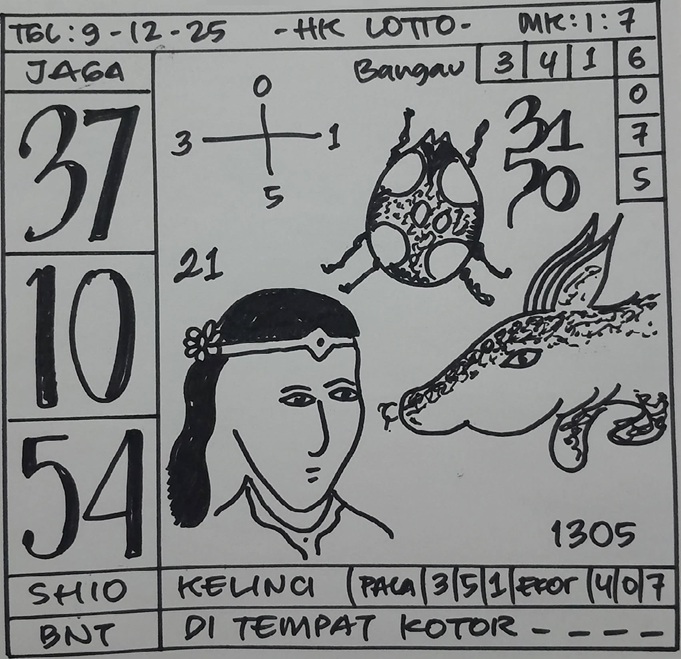 TGL: 9-12-25 -HK LOTTO- MK: 1: 7
JAGA
Bangau 3 4 1 6
0
7
5
37
0
3 1
5
31
50
21
10
54
1305
SHIO KELINCI (PALA |3|5|1| EKOR |4|0|7
BNT DI TEMPAT KOTOR - - - -